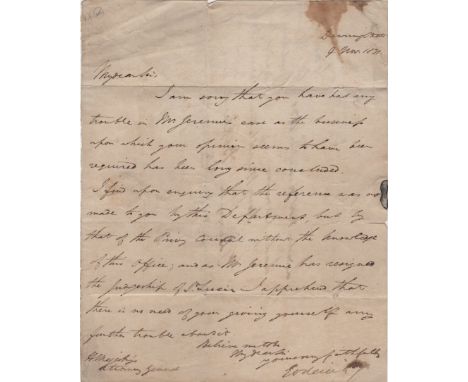 Downing Street
9 Nov. 1831
My dear Sir,
I am sorry that you have had any
trouble in Mr Jeremie's case as the business
upon which your opinion seems to have been
required has been long since concluded.
I find upon enquiry that the reference was not
made to you by this Department, but by
that of the Privy Council without the knowledge
of this Office; and as Mr Jeremie has resigned
the judgeship of St Lucia I apprehend that
there is no need of your giving yourself any
further trouble about it.
Believe me to be
My dear Sir
yours very faithfully
Goderich
H Majesty's
Attorney General